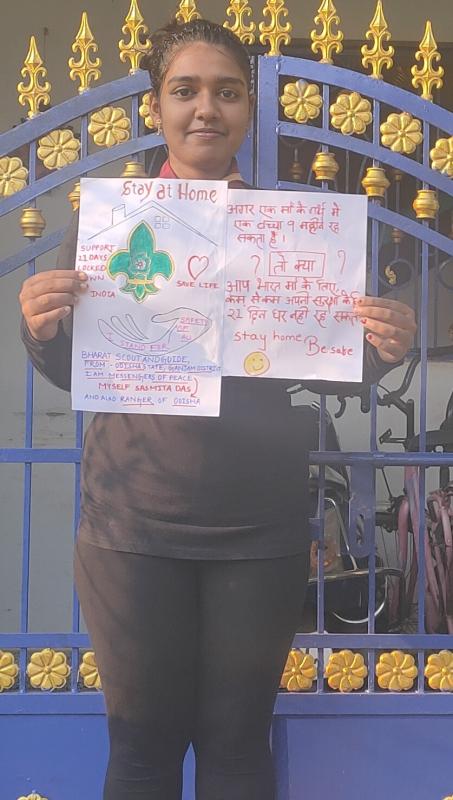 Stay at Home
SUPPORT
21 DAYS
LOCKED
OWN
INDIA
SAVE LIFE
SAFETY
OF
ALL
I STAND FOR
BHARAT SCOUT AND GUIDE,
FROM - ODISHA STATE, GANJAM DISTRICT
I AM MESSENGERS OF PEACE
MYSELF SASMITA DAS
AND ALSO RANGER OF ODISHA
अगर एक माँ के गर्भ मे
एक बच्चा ९ महीने रह
सकता है ।
? तो क्या ?
आप भारत माँ के लिए
कम से कम अपनी सुरक्षा के लिए
21 दिन घर नही रह सकते
stay home Be safe